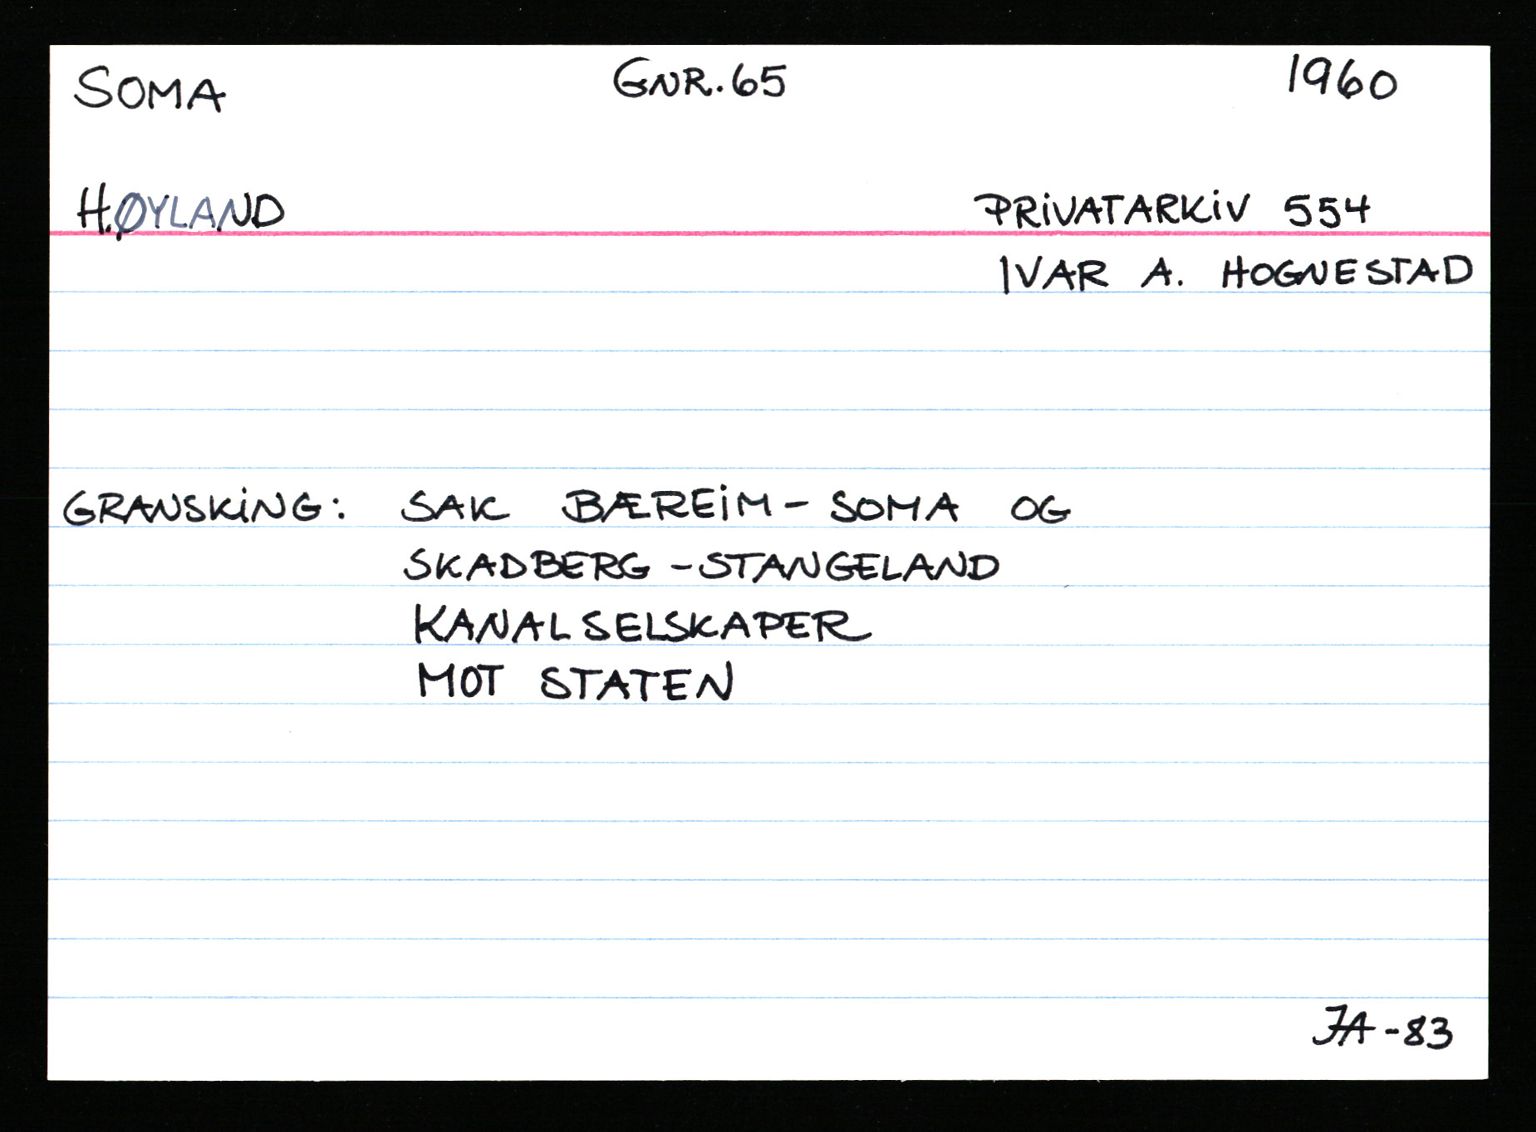 SOMA GNR. 65 1960
HØYLAND PRIVATARKIV 554
IVAR A. HOGNESTAD
GRANSKING: SAK BÆREIM - SOMA OG
SKADBERG - STANGELAND
KANALSELSKAPER
MOT STATEN
JA - 83